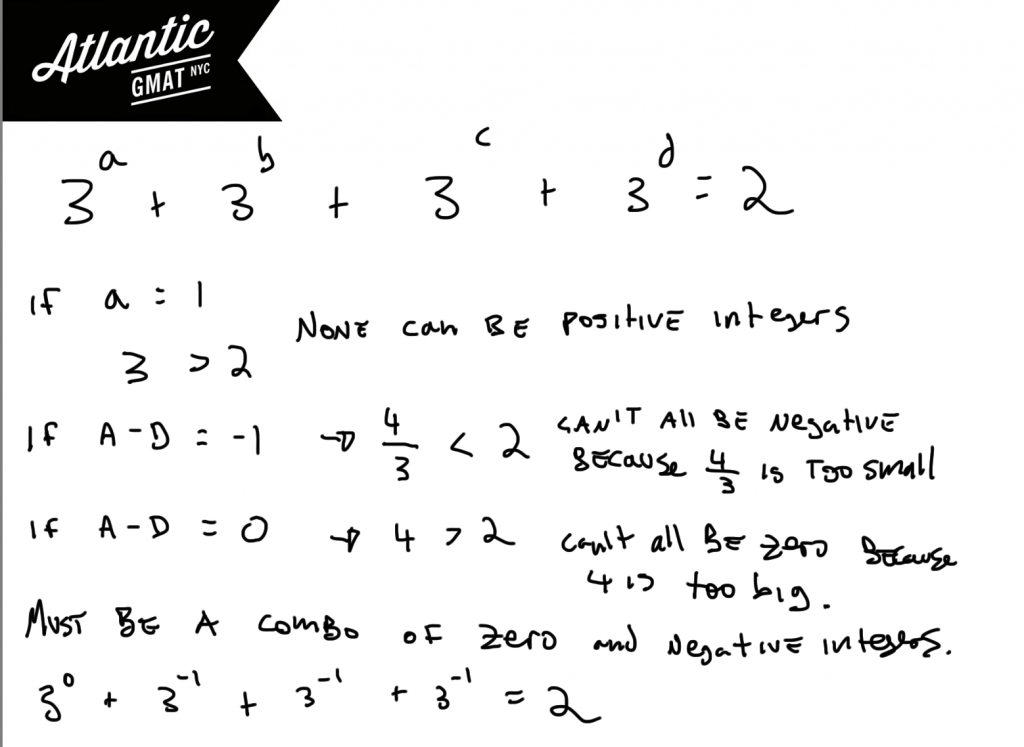 Atlantic
GMAT NYC
3^a + 3^b + 3^c + 3^d = 2
If a = 1
3 > 2
None can BE positivE integers
If A-D = -1 → 4/3 < 2
CAN'T All BE Negative
BEcause 4/3 is Too small
If A-D = 0 → 4 > 2
can't all BE zero BEcause
4 is too big.
Must BE A combo of zero and NegativE integers.
3^0 + 3^-1 + 3^-1 + 3^-1 = 2